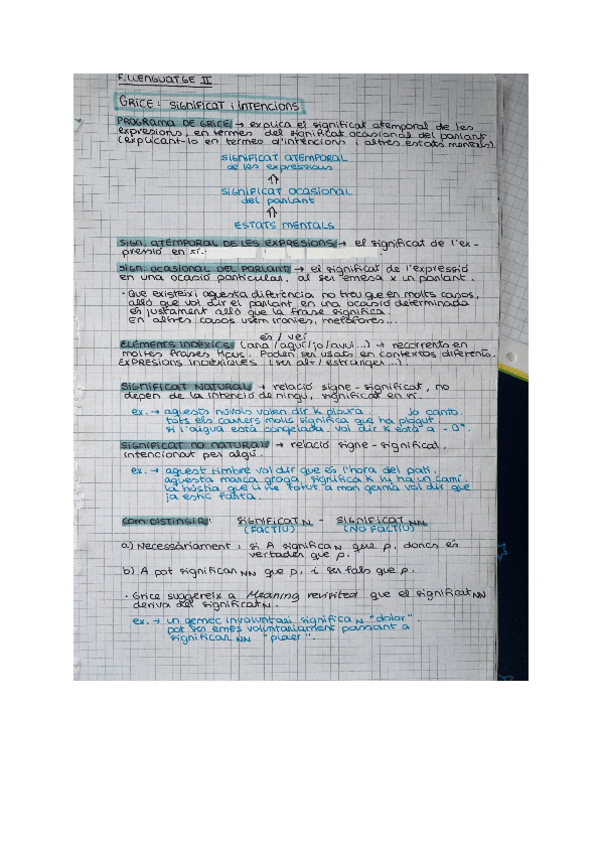 F. LLENGUATGE II
GRICE: SIGNIFICAT i INTENCIONS
PROGRAMA DE GRICE → explica el significat atemporal de les
expresions, en termes del significat ocasional del parlant
(explicant-lo en termes d'intencions i altres estats mentals).
SIGNIFICAT ATEMPORAL
de les expressions
⇑
SIGNIFICAT OCASIONAL
del parlant
⇑
ESTATS MENTALS
SIGN. ATEMPORAL DE LES EXPRESIONS → el significat de l'ex-
pressió en sí.
SIGN. OCASIONAL DEL PARLANT → el significat de l'expressió
en una ocasió particular, al ser emesa x un parlant.
· Que existeixi aquesta diferència no treu que en molts casos,
allò que vol dir el parlant en una ocasió determinada
és justament allò que la frase significa.
En altres casos usem ironies, metàfores...
és / veí
ELEMENTS INDÈXICS (ara/aquí/jo/avui...) → recorrents en
moltes frases tipus. Poden ser usats en contextos diferents.
EXPRESIONS INDÈXIQUES (ser alt/estranger...).
SIGNIFICAT NATURAL → relació signe-significat, no
depen de la intenció de ningú, significat en sí.
ex. → aquests núvols volen dir k plourà jo canto.
tots els carrers molls significa que ha plogut.
si l'aigua està congelada, vol dir k està a -0°.
SIGNIFICAT NO NATURAL → relació signe-significat,
intencionat per algú.
ex. → aquest timbre vol dir que és l'hora del pati.
aquesta marca groga, significa k hi ha un camí.
la hòstia que li he fotut a mon germà vol dir que
ja estic farta.
COM DISTINGIR: SIGNIFICAT N - SIGNIFICAT NN
(FACTIU) (NO FACTIU)
a) Necessàriament, si A significa N que p, doncs és
vertader que p.
b) A pot significar NN que p, i ser fals que p.
· Grice suggereix a Meaning revisited que el significat NN
deriva del significat N.
ex. → un gemec involuntari significa N "dolor".
pot ser emès voluntàriament passant a
significar NN "plaer".